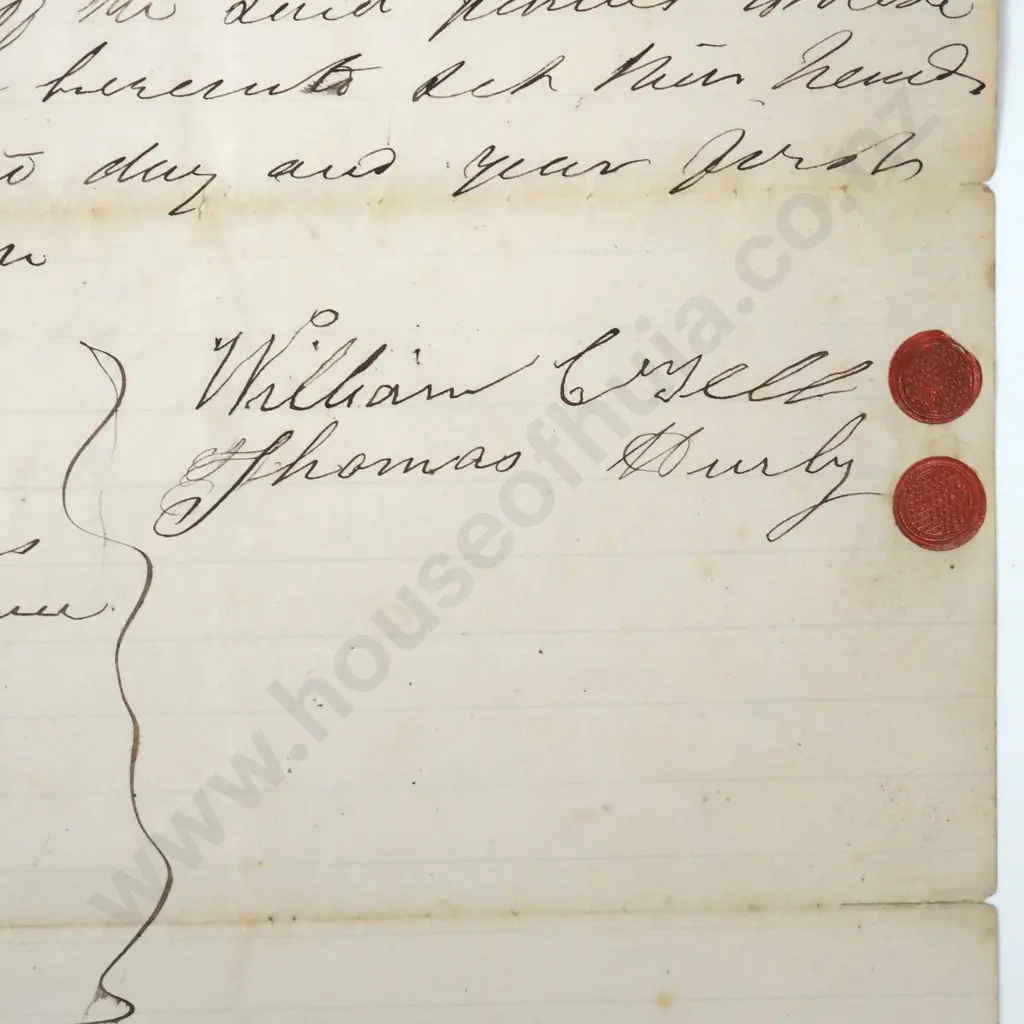 of the said parties
hereunto set their hands
day and year first
William
Thomas Hurly
www.houseofhuia.co.nz